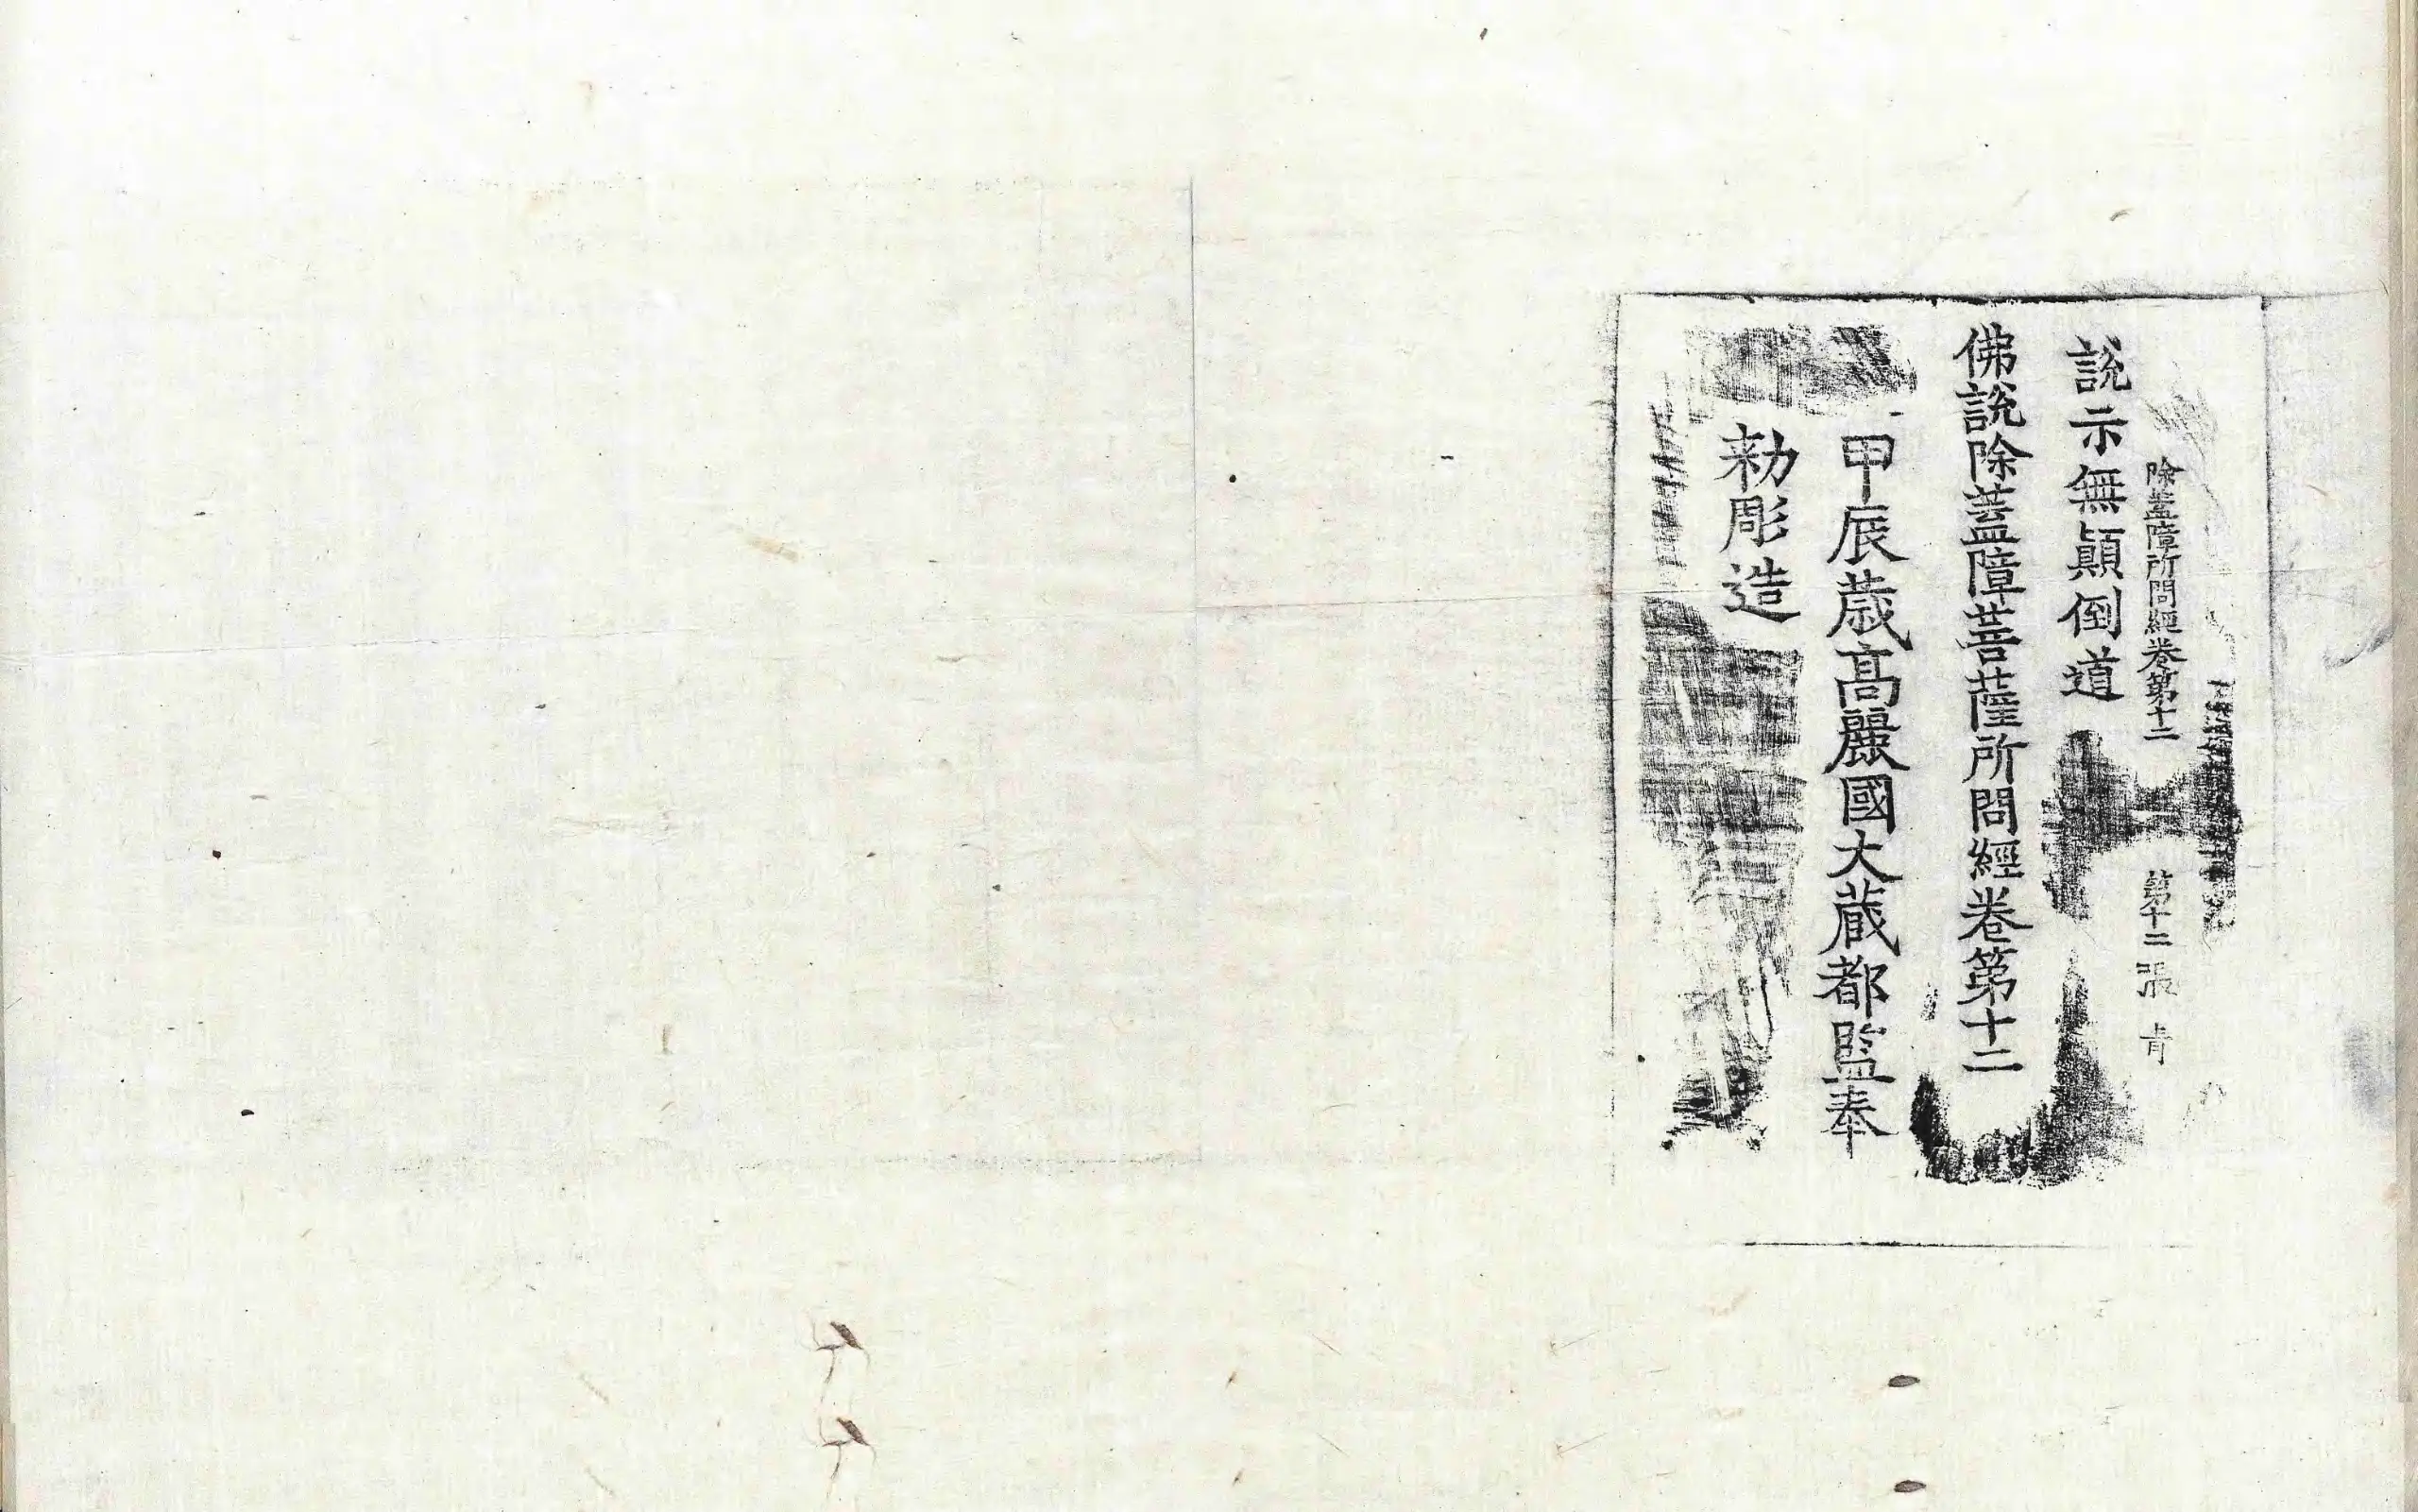 除蓋障所問經卷第十二 第十二張 肯
說示無顚倒道
佛說除蓋障菩薩所問經卷第十二
甲辰歲高麗國大藏都監奉
勅彫造